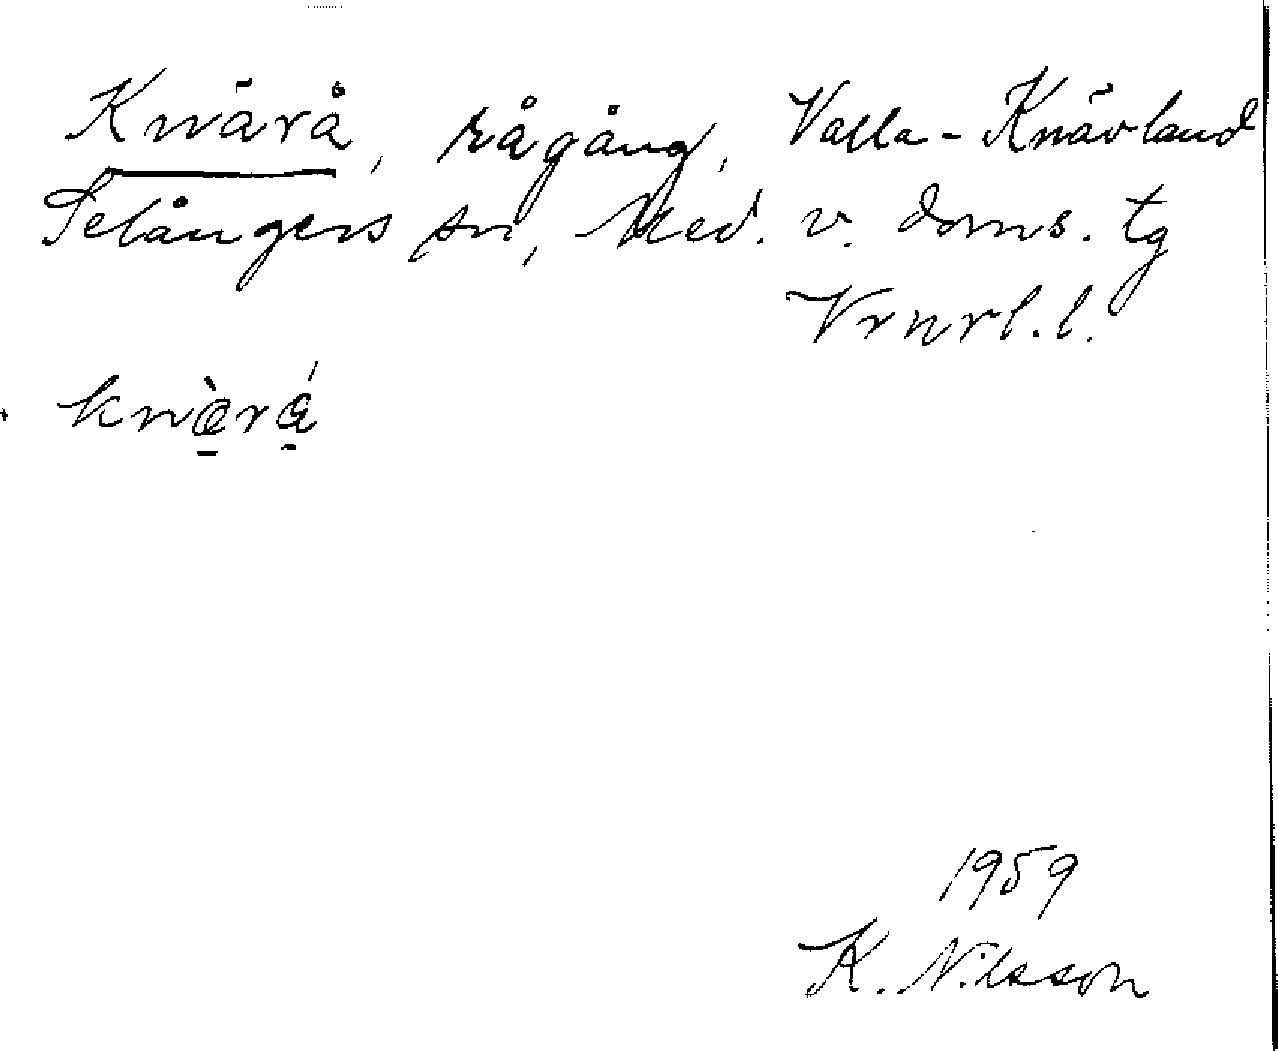 Knärå, rågång, Valla-Knävland
Selångers sn, Med. v. doms. tg
knàrá
1959
K. Nilsson